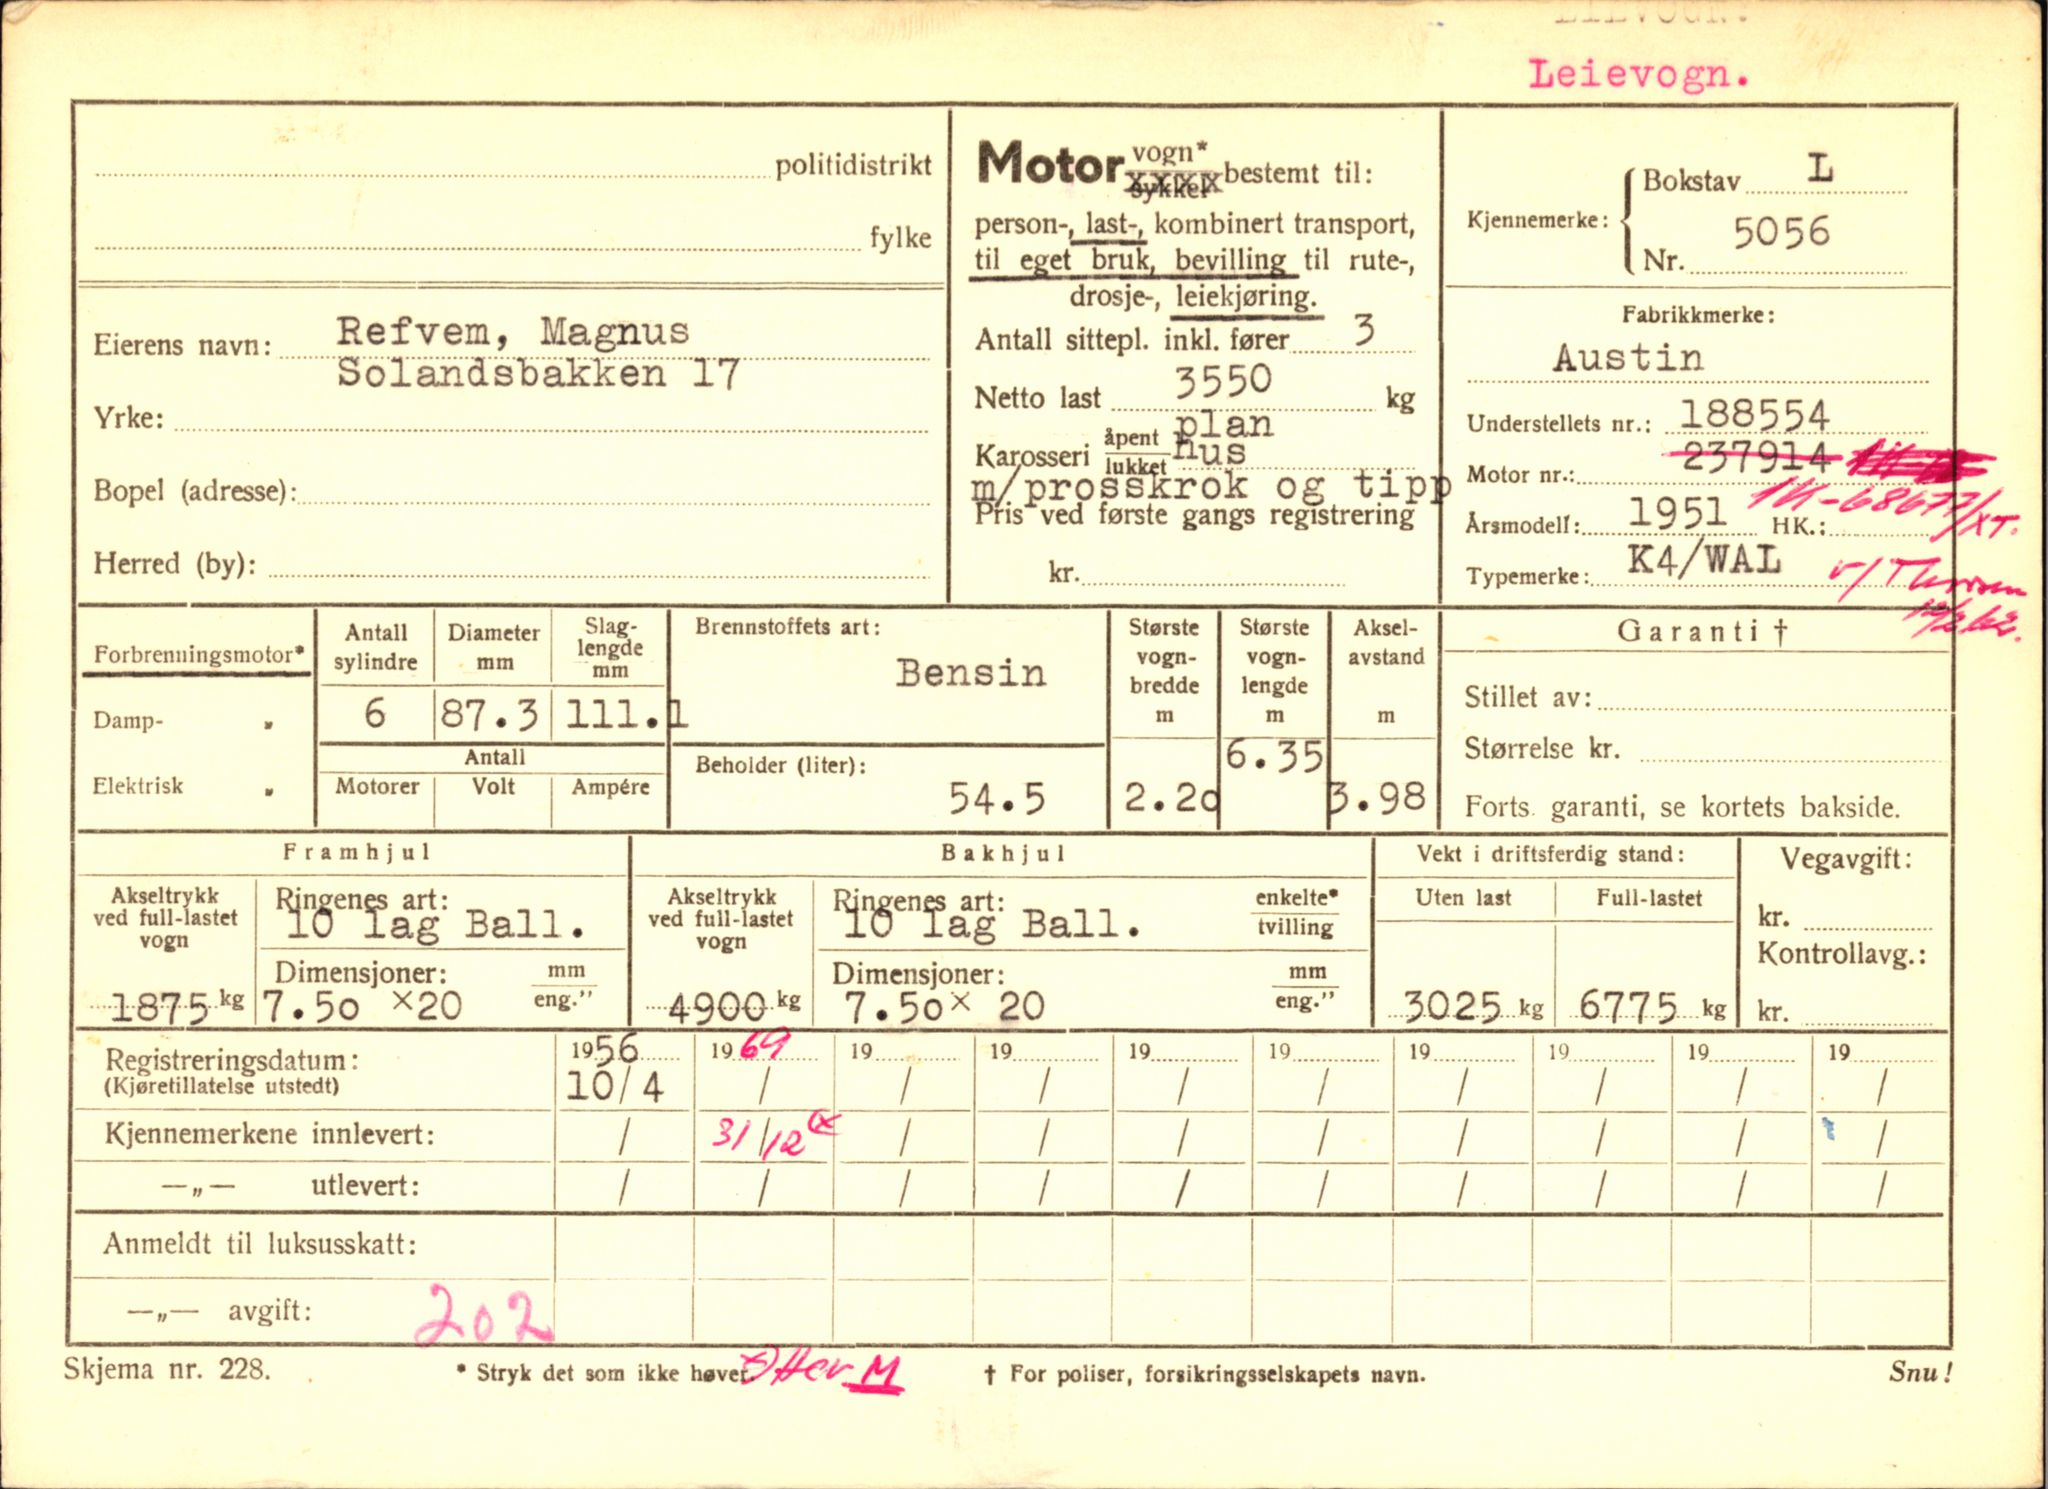 Leievogn.
politidistrikt
fylke
Eierens navn: Refvem, Magnus
Solandsbakken 17
Yrke:
Bopel (adresse):
Herred (by):
Motor vogn* sykkel bestemt til:
person-, last-, kombinert transport,
til eget bruk, bevilling til rute-,
drosje-, leiekjøring.
Antall sittepl. inkl. fører 3
Netto last 3550 kg
Karosseri åpent plan
lukket hus
m/prosskrok og tipp
Pris ved første gangs registrering
kr.
Kjennemerke: Bokstav L
Nr. 5056
Fabrikkmerke:
Austin
Understellets nr.: 188554
Motor nr.: 237914
1K-68677/XT.
Årsmodell: 1951 HK.:
Typemerke: K4/WAL
Forbrenningsmotor*
Damp- „
Elektrisk „
Antall sylindre
6
Diameter mm
87.3
Slaglengde mm
111.1
Antall
Motorer Volt Ampére
Brennstoffets art:
Bensin
Beholder (liter):
54.5
Største vognbredde m
2.20
Største vognlengde m
6.35
Akselavstand m
3.98
Garanti †
Stillet av:
Størrelse kr.
Forts. garanti, se kortets bakside.
Framhjul
Akseltrykk ved full-lastet vogn
1875 kg
Ringenes art:
10 lag Ball.
Dimensjoner: mm eng."
7.50 ×20
Bakhjul
Akseltrykk ved full-lastet vogn
4900 kg
Ringenes art: enkelte* tvilling
10 lag Ball.
Dimensjoner: mm eng."
7.50× 20
Vekt i driftsferdig stand:
Uten last Full-lastet
3025 kg 6775 kg
Vegavgift:
kr.
Kontrollavg.:
kr.
Registreringsdatum: 1956 1969 19 19 19 19 19 19 19 19
(Kjøretillatelse utstedt) 10/4 / / / / / / / / /
Kjennemerkene innlevert: / 31/12 / / / / / / / /
—„— utlevert: / / / / / / / / / /
Anmeldt til luksusskatt:
—„— avgift: 202
Skjema nr. 228.
* Stryk det som ikke høver.
M
† For poliser, forsikringsselskapets navn.
Snu!